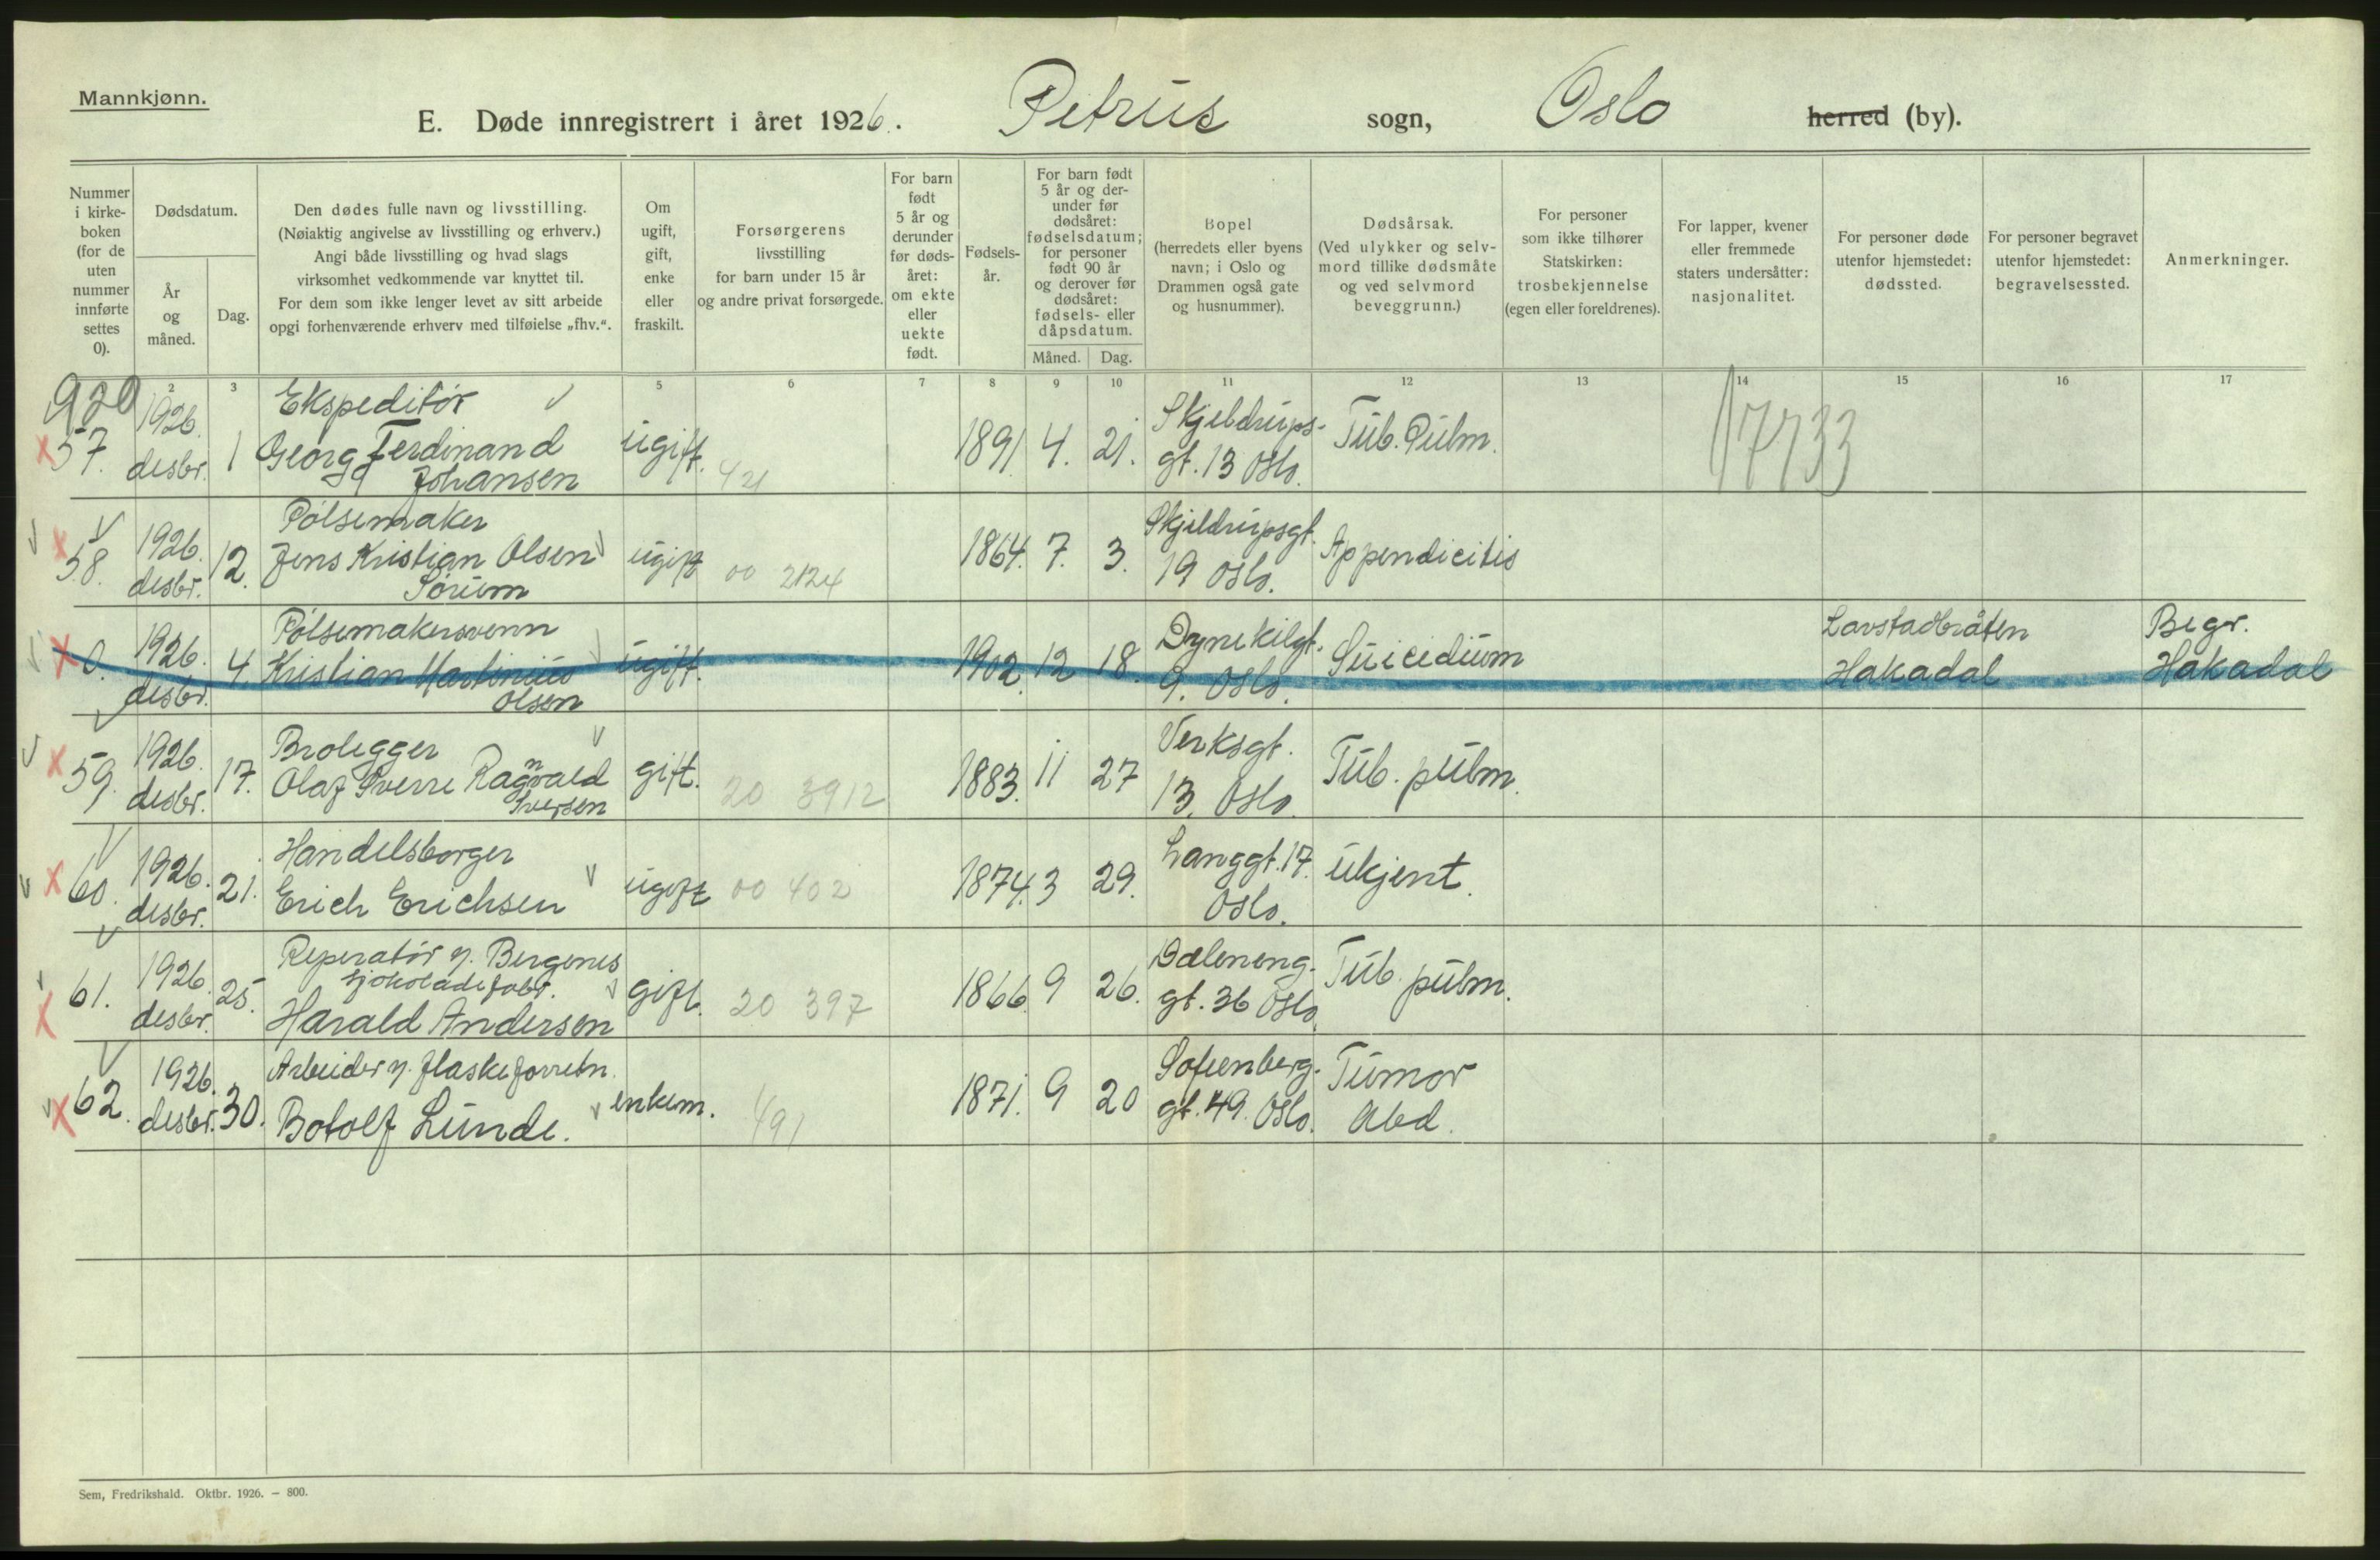 Mannkjønn.
E. Døde innregistrert i året 1926. Petrus sogn, Oslo herred (by).
Nummer i kirke-boken (for de uten nummer innførte settes 0).
Dødsdatum.
År og måned.
Dag.
Den dødes fulle navn og livsstilling.
(Nøiaktig angivelse av livsstilling og erhverv.)
Angi både livsstilling og hvad slags
virksomhet vedkommende var knyttet til.
For dem som ikke lenger levet av sitt arbeide
opgi forhenværende erhverv med tilføielse „fhv.“.
Om ugift, gift, enke eller fraskilt.
Forsørgerens
livsstilling
for barn under 15 år
og andre privat forsørgede.
For barn født 5 år og derunder før døds-året: om ekte eller uekte født.
Fødsels-år.
For barn født 5 år og der-under før dødsåret: fødselsdatum; for personer født 90 år og derover før dødsåret: fødsels- eller dåpsdatum.
Måned. Dag.
Bopel
(herredets eller byens
navn; i Oslo og
Drammen også gate
og husnummer).
Dødsårsak.
(Ved ulykker og selv-
mord tillike dødsmåte
og ved selvmord
beveggrunn.)
For personer
som ikke tilhører
Statskirken:
trosbekjennelse
(egen eller foreldrenes).
For lapper, kvener
eller fremmede
staters undersåtter:
nasjonalitet.
For personer døde
utenfor hjemstedet:
dødssted.
For personer begravet
utenfor hjemstedet:
begravelsessted.
Anmerkninger.
2 3 5 6 7 8 9 10 11 12 13 14 15 16 17
920 1926. Ekspeditør Skjeldrups-
57. desbr. 1 Georg Ferdinand ugift. 421 1891 4. 21. gt. 13 Oslo. Tub. Pulm. 17733
Johansen
1926. Pølsemaker Skjeldrupsgt.
58. desbr. 12. Jens Kristian Olsen ugift 00 2124 1864. 7. 3. 19 Oslo. Appendicitis
Sørum
1926. Pølsemakersvenn Dynekilgt. Lavstadbråten Begr.
0. desbr. 4. Kristian Martinius ugift. 1902. 12 18. 9. Oslo. Suicidium Hakadal Hakadal
Olsen
1926. Brolegger Verksgt.
59. desbr. 17. Olaf Sverre Ragnvald gift. 20 3912 1883. 11 27 13. Oslo. Tub. pulm.
Iversen
1926. Handelsborger Langgt. 17.
60. desbr. 21. Erich Erichsen ugift 00 402 1874. 3 29. Oslo. ukjent.
1926. Reperatør v. Bergenes Dæleneng-
sjokoladefabr.
61. desbr. 25. Harald Andersen gift. 20 397 1866 9 26. gt. 36 Oslo. Tub. pulm.
1926. Arbeider v. flaskeforretn. Sofienberg- Tumor
62. desbr. 30. Botolf Lunde. enkem. 491 1871. 9 20 gt. 49. Oslo. Abd.
Sem, Fredrikshald. Oktbr. 1926. — 800.